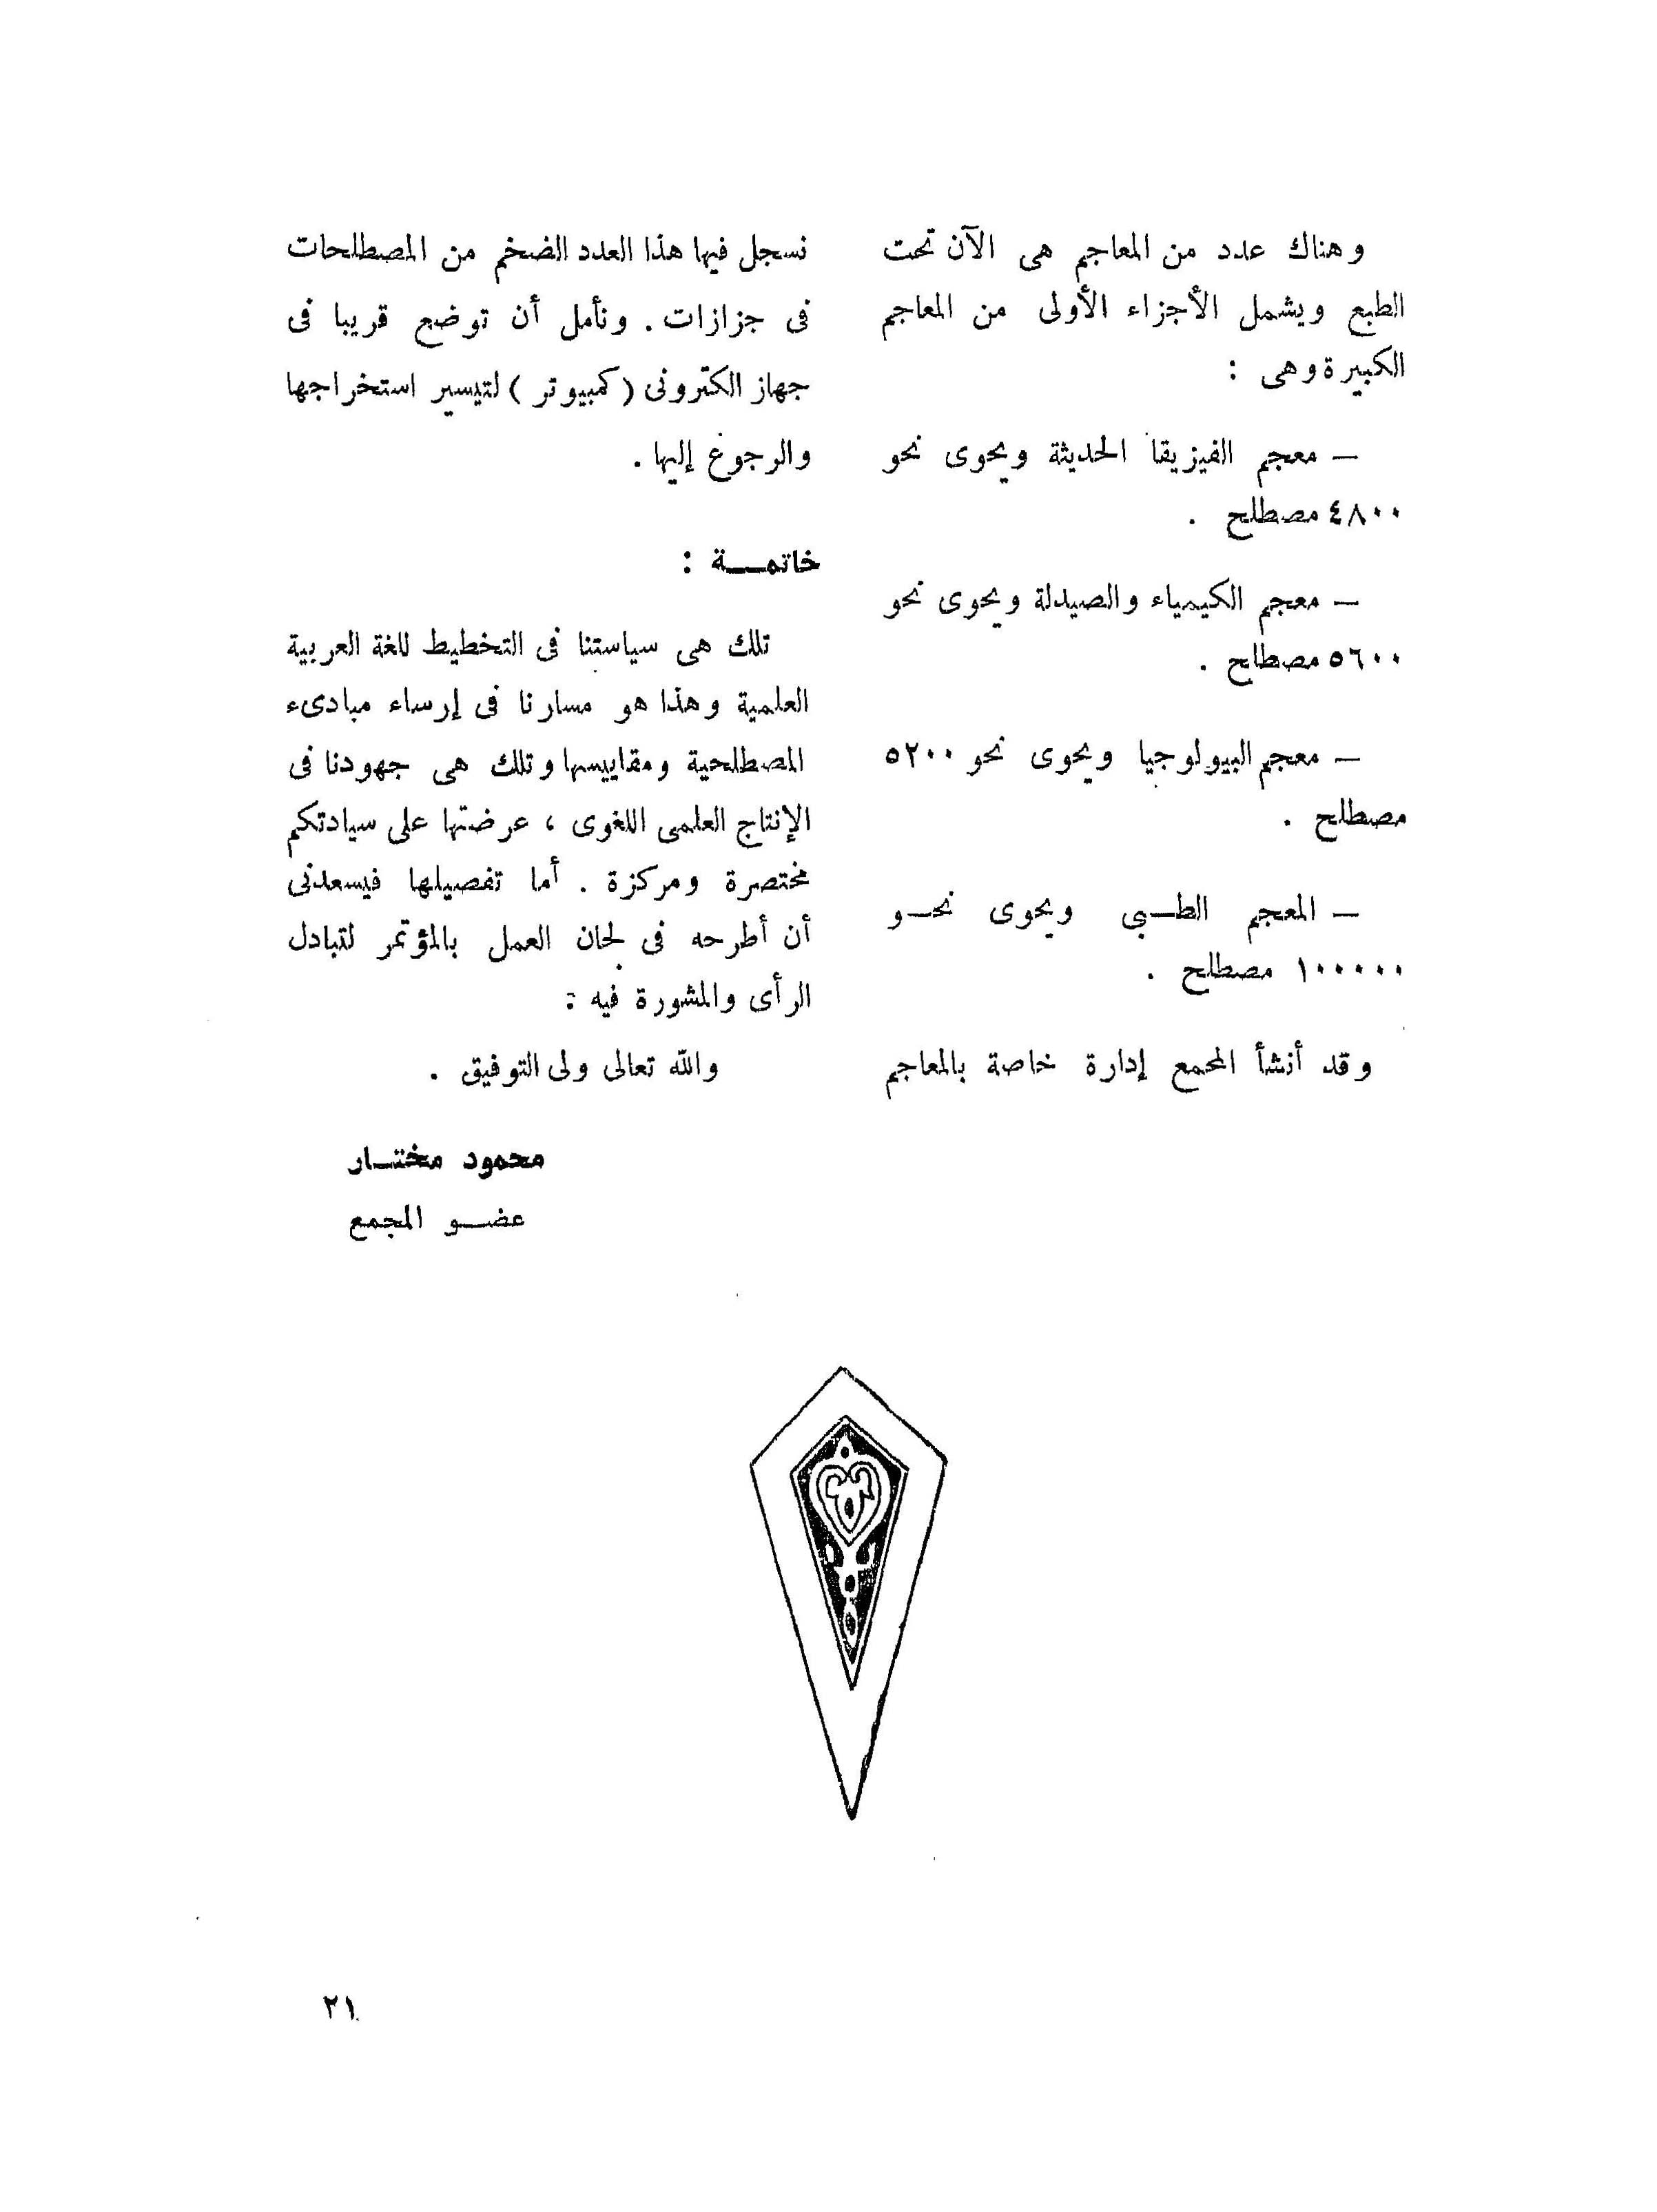 وهناك عدد من المعاجم هى الآن تحت
الطبع ويشمل الأجزاء الأولى من المعاجم
الكبيرة وهى :
— معجم الفيزيقا الحديثة ويحوى نحو
٤٨٠٠ مصطلح .
— معجم الكيمياء والصيدلة ويحوى نحو
٥٦٠٠ مصطلح .
— معجم البيولوجيا ويحوى نحو ٥٢٠٠
مصطلح .
— المعجم الطــبى ويحوى نحــو
١٠٠٠٠٠ مصطلح .
وقد أنشأ المجمع إدارة خاصة بالمعاجم
نسجل فيها هذا العدد الضخم من المصطلحات
فى جزازات . ونأمل أن توضع قريبا فى
جهاز الكترونى ( كمبيوتر ) لتيسير استخراجها
والرجوع إليها .
خاتمــة :
تلك هى سياستنا فى التخطيط للغة العربية
العلمية وهذا هو مسارنا فى إرساء مبادىء
المصطلحية ومقاييسها وتلك هى جهودنا فى
الإنتاج العلمى اللغوى ، عرضتها على سيادتكم
مختصرة ومركزة . أما تفصيلها فيسعدنى
أن أطرحه فى لجان العمل بالمؤتمر لتبادل
الرأى والمشورة فيه :
والله تعالى ولى التوفيق .
محمود مختــار
عضــو المجمع
٢١